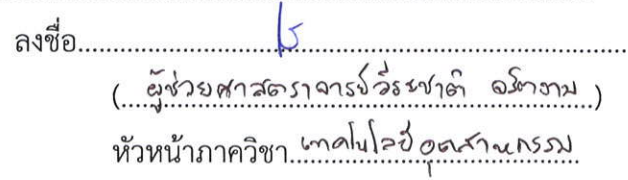 ลงชื่อ
(ผู้ช่วยศาสตราจารย์วีระชาติ จริตงาม)
หัวหน้าภาควิชา เทคโนโลยีอุตสาหกรรม